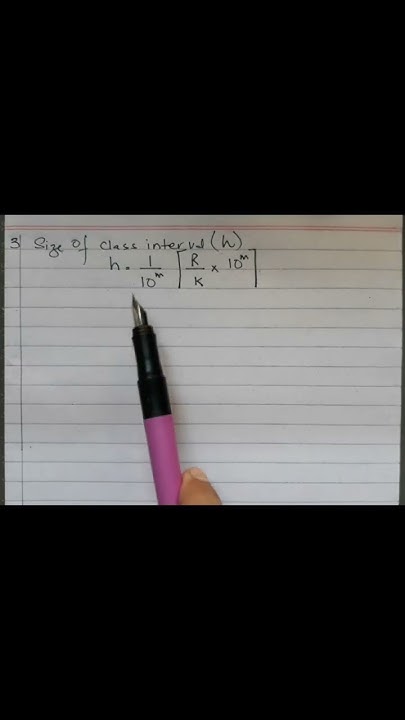 3 Size of class interval (h)
h = 1/10^m ⌈R/K × 10^m⌉